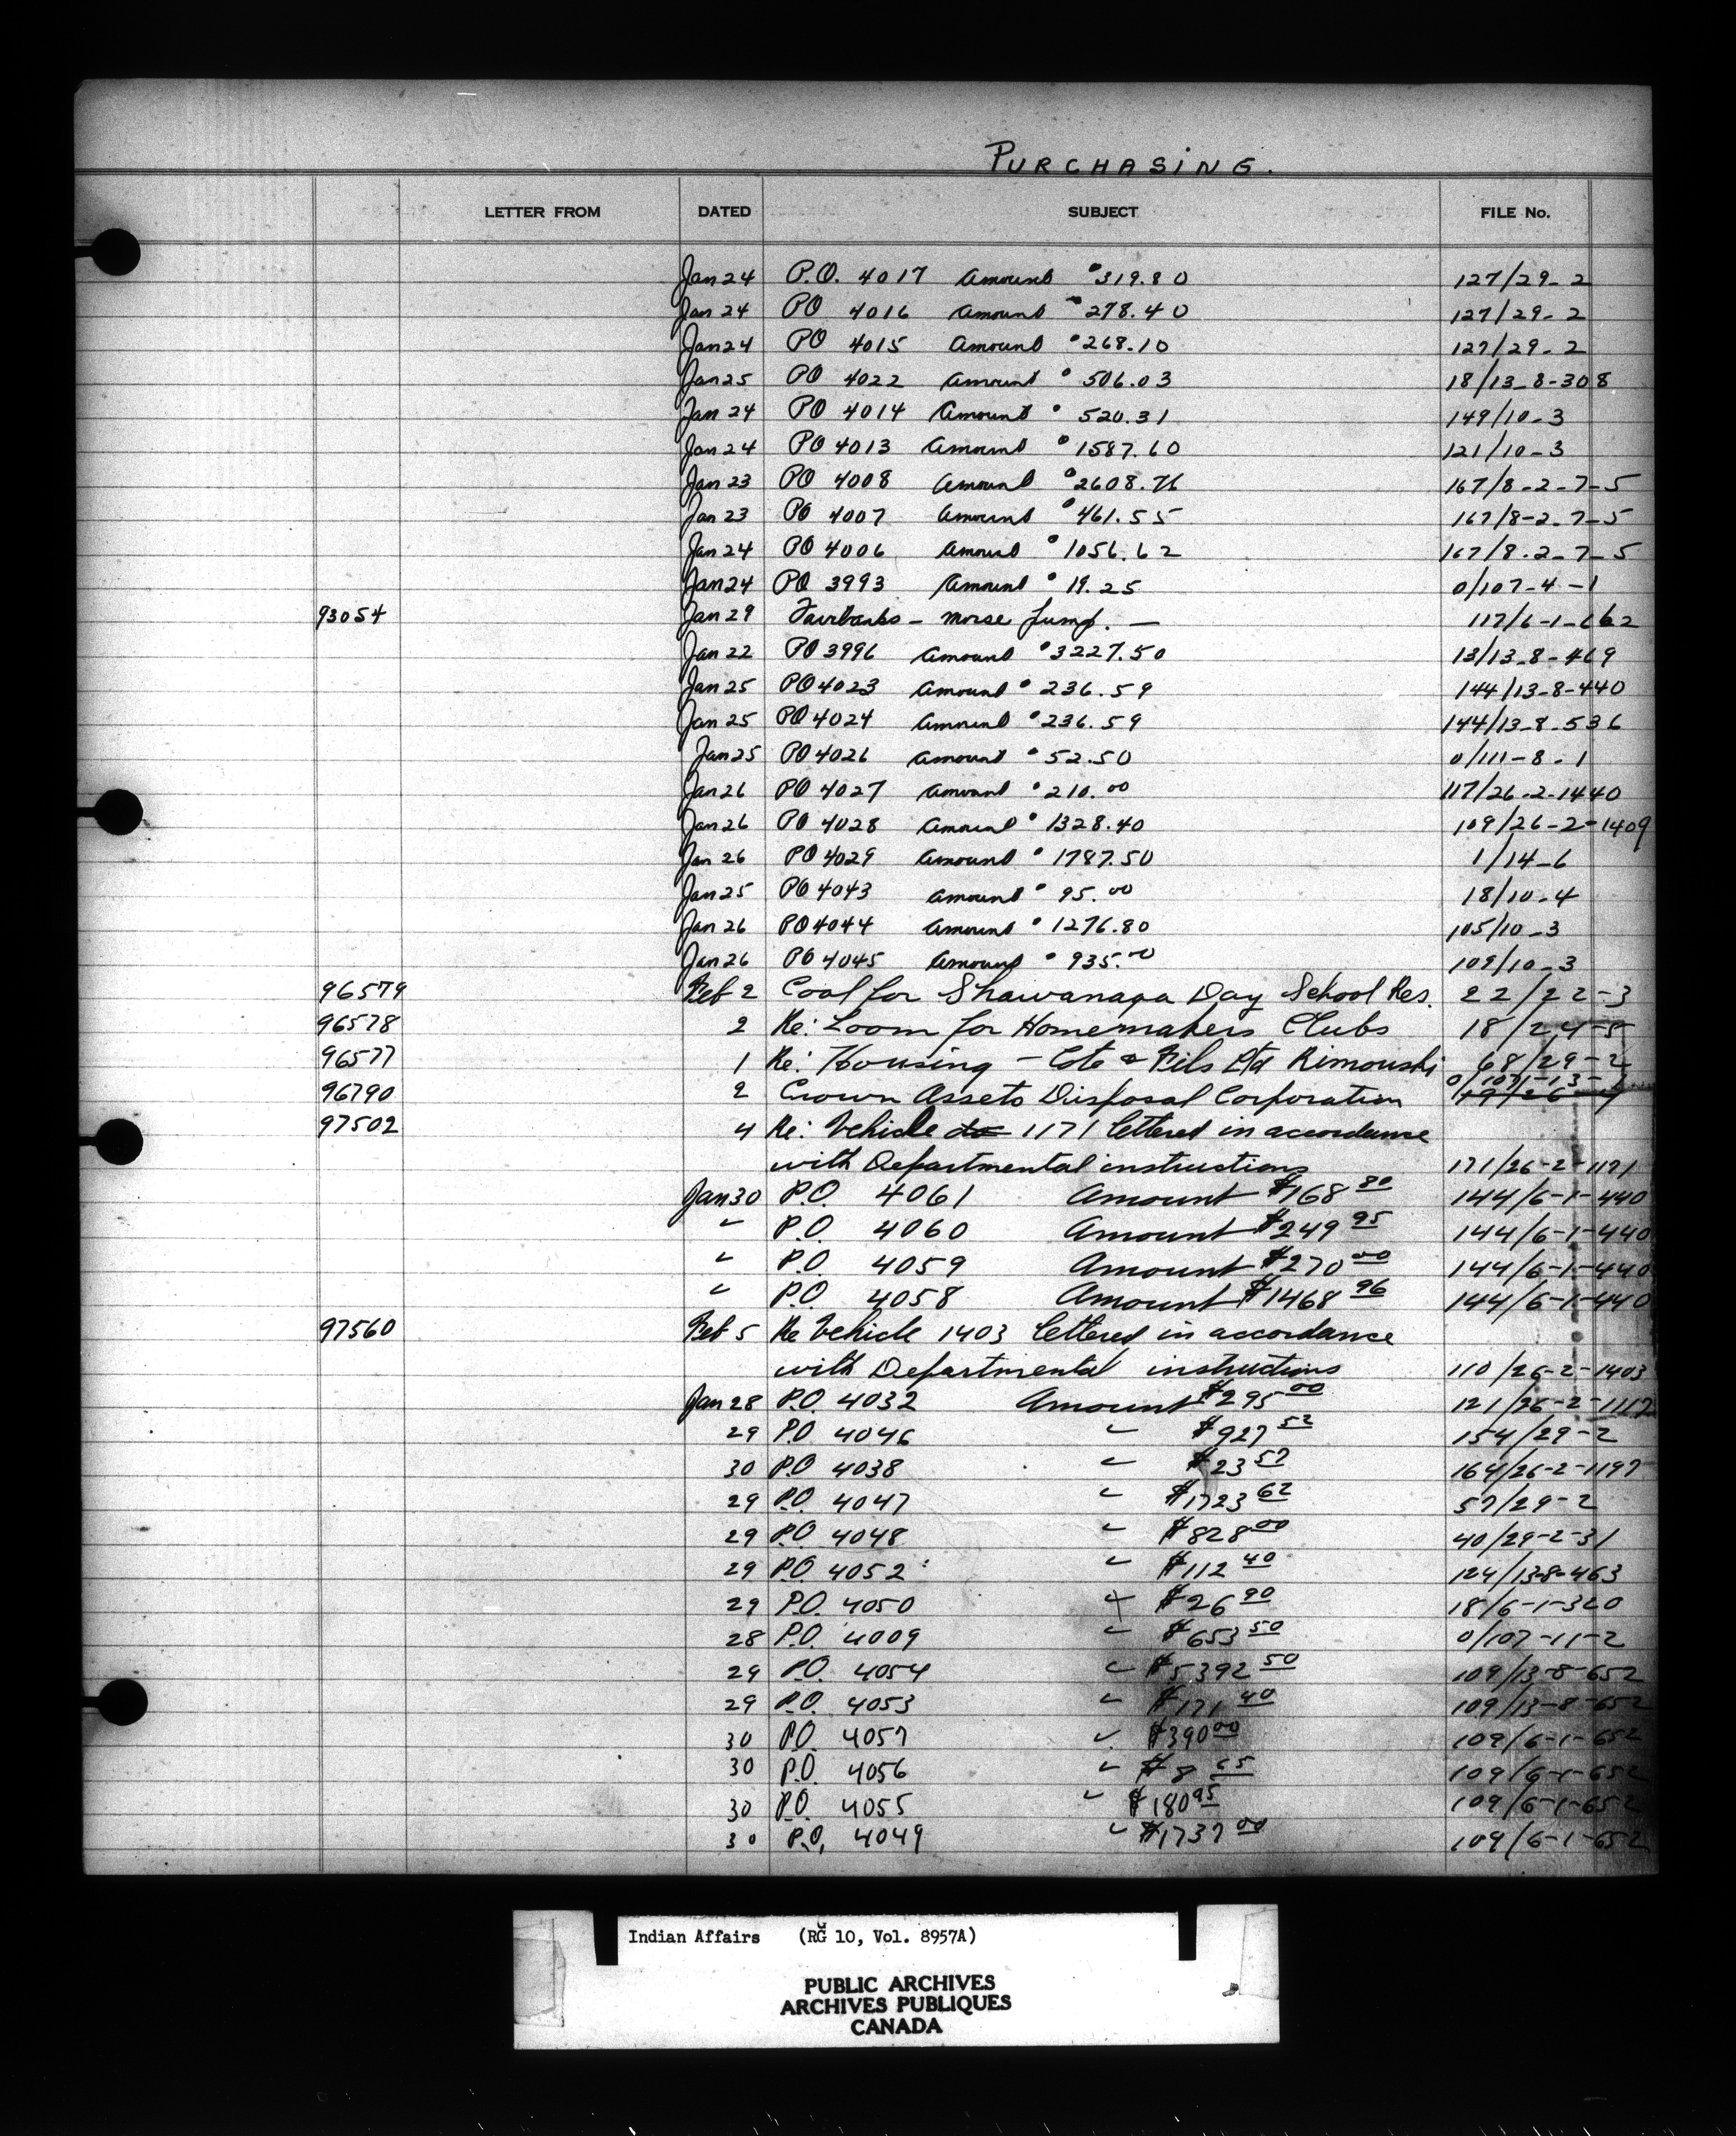 PURCHASING.
LETTER FROM DATED SUBJECT FILE No.
Jan 24 P.O. 4017 Amount $319.80 127/29-2
Jan 24 PO 4016 Amount $278.40 127/29-2
Jan 24 PO 4015 Amount $268.10 127/29-2
Jan 25 PO 4022 Amount $506.03 18/13-8-308
Jan 24 PO 4014 Amount $520.31 149/10-3
Jan 24 PO 4013 Amount $1587.60 121/10-3
Jan 23 PO 4008 Amount $2608.76 167/8-2-7-5
Jan 23 PO 4007 Amount $461.55 167/8-2-7-5
Jan 24 PO 4006 Amount $1056.62 167/8-2-7-5
Jan 24 PO 3993 Amount $19.25 0/107-4-1
93054 Jan 29 Fairbanks - Morse Pump. — 117/6-1-662
Jan 22 PO 3996 Amount $3227.50 13/13-8-469
Jan 25 PO 4023 Amount $236.59 144/13-8-440
Jan 25 PO 4024 Amount $236.59 144/13-8-536
Jan 25 PO 4026 Amount $52.50 0/111-8-1
Jan 26 PO 4027 Amount $210.00 117/26-2-1440
Jan 26 PO 4028 Amount $1328.40 109/26-2-1409
Jan 26 PO 4029 Amount $1787.50 1/14-6
Jan 25 PO 4043 Amount $95.00 18/10-4
Jan 26 PO 4044 Amount $1276.80 105/10-3
Jan 26 PO 4045 Amount $935.00 109/10-3
96579 Feb 2 Coal for Shawanaga Day School Res. 22/22-3
96578 2 Re: Loom for Homemakers Clubs 18/24-5
96577 1 Re: Housing - Cote & Fils Ltd Rimouski 68/29-2
96790 2 Crown Assets Disposal Corporation 0/107-13-
97502 4 Re: Vehicle 1171 lettered in accordance
with Departmental instructions 171/26-2-1171
Jan 30 P.O. 4061 Amount $168 80 144/6-1-440
" P.O. 4060 Amount $249 95 144/6-1-440
" P.O 4059 Amount $270 00 144/6-1-440
" P.O. 4058 Amount $1468 96 144/6-1-440
97560 Feb 5 Re Vehicle 1403 lettered in accordance
with Departmental instructions 110/26-2-1403
Jan 28 P.O. 4032 Amount $295 00 121/26-2-1112
29 P.O 4046 " $927 52 154/29-2
30 P.O 4038 " $23 57 164/26-2-1197
29 P.O. 4047 " $1723 62 57/29-2
29 P.O. 4048 " $828 00 40/29-2-31
29 P.O. 4052 " $112 40 124/13-8-463
29 P.O. 4050 " $26 90 18/6-1-320
28 P.O. 4009 " $653 50 0/107-11-2
29 P.O. 4054 " $5392 50 109/13-8-652
29 P.O. 4053 " $171 40 109/13-8-652
30 P.O. 4057 " $390 00 109/6-1-652
30 P.O. 4056 " $8 65 109/6-1-652
30 P.O. 4055 " $180 95 109/6-1-652
30 P.O. 4049 " $1737 00 109/6-1-652
Indian Affairs (RG 10, Vol. 8957A)
PUBLIC ARCHIVES
ARCHIVES PUBLIQUES
CANADA